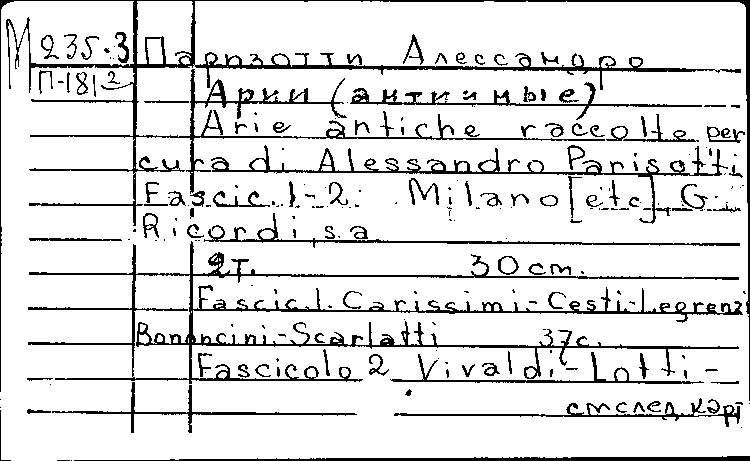 М 235.3 Паризотти, Алессандро
П-181 2
Арии (античные)
Arie antiche raccolte per
cura di Alessandro Parisotti
Fascic. 1-2. Milano [etc], G.
Ricordi, s.a
2т. 30 cm.
Fascic. 1. Carissimi.-Cesti.-Legrenzi
Bononcini.-Scarlatti 37с.
Fascicolo 2 Vivaldi-Lotti-
см след. карт